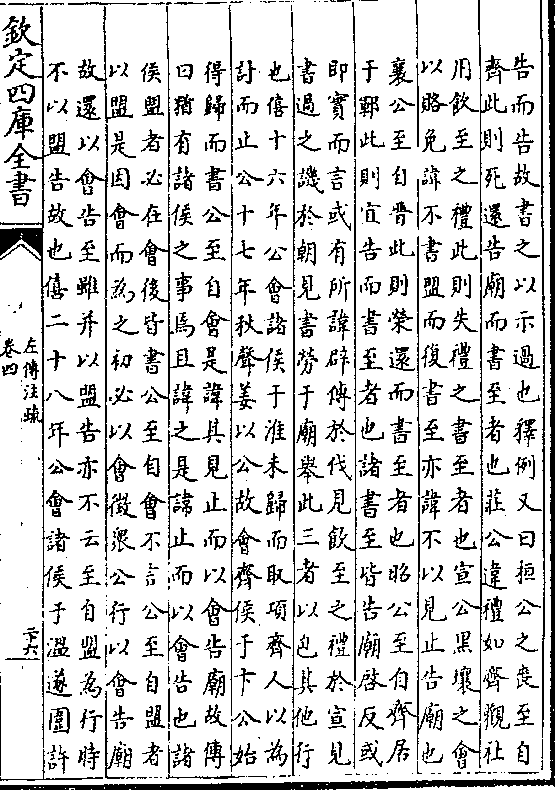 告而告故書之以示過也釋例又曰桓公之喪至自
齊此則死還告廟而書至者也莊公違禮如齊觀社
用飲至之禮此則失禮之書至者也宣公黑壤之會
以賂免諱不書盟而復書至亦諱不以見止告廟也
襄公至自晉此則榮還而書至者也昭公至自齊居
于鄆此則宜告而書至者也諸書至皆告廟啓反或
即實而言或有所諱辟傳於伐見飲至之禮於宣見
書過之譏於朝見書勞于廟舉此三者以包其他行
也僖十六年公會諸侯于淮未歸而取項齊人以為
討而止公十七年秋聲姜以公故會齊侯于卞公始
得歸而書公至自會是諱其見止而以會告廟故傳
曰猶有諸侯之事焉且諱之是諱止而以會告也諸
侯盟者必在會後皆書公至自會不言公至自盟者
以盟是因會而為之初必以會徵衆公行以會告廟
故還以會告至雖并以盟告亦不云至自盟為行時
不以盟告故也僖二十八年公會諸侯于溫遂圍許
欽定四庫全書
左傳注疏
卷四
二十六